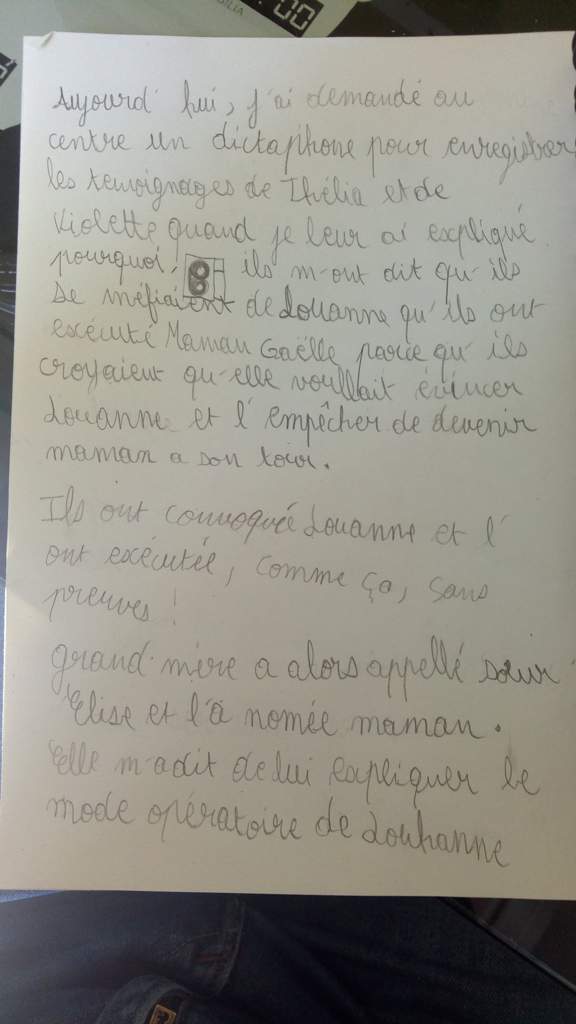 Aujourd'hui, j'ai demandé au
centre un dictaphone pour enregistrer
les temoignages de Thélia et de
Violette quand je leur ai expliqué
pourquoi, ils m'ont dit qu'ils
se méfiaient de Louanne qu'ils ont
exécuté Maman Gaëlle parce qu'ils
croyaient qu'elle voullait évincer
Louanne et l'empêcher de devenir
maman a son tour.
Ils ont convoquée Louanne et l'
ont exécutée, comme ça, sans
preuves !
grand-mère a alors appellé sœur
Elise et l'à nomée maman.
Elle m'a dit de lui expliquer le
mode opératoire de Louhanne